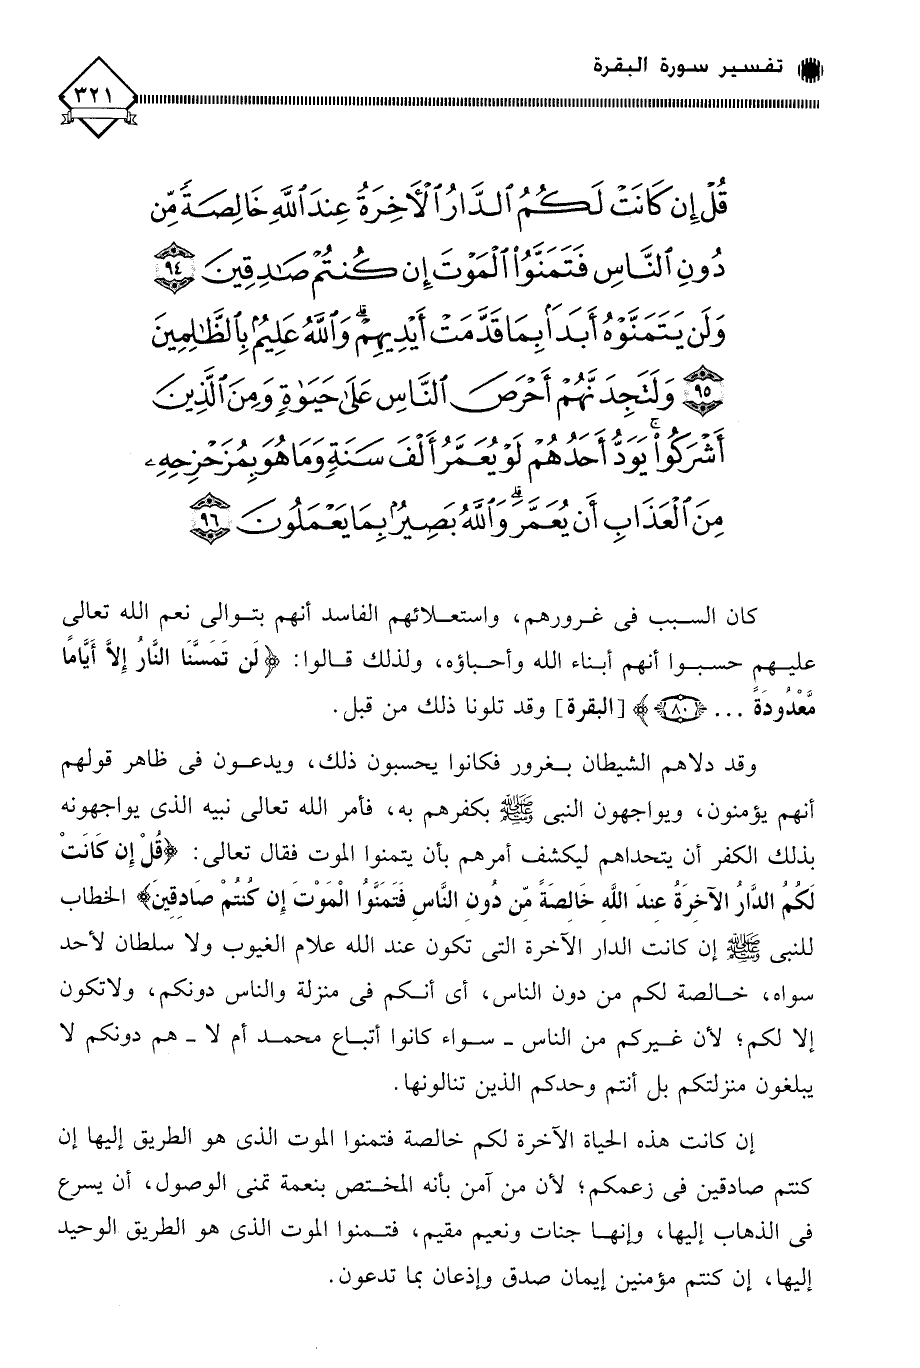 تفسير سورة البقرة
٣٢١
قُلْ إِن كَانَتْ لَكُمُ ٱلدَّارُ ٱلْأَخِرَةُ عِندَ ٱللَّهِ خَالِصَةً مِّن
دُونِ ٱلنَّاسِ فَتَمَنَّوُا۟ ٱلْمَوْتَ إِن كُنتُمْ صَٰدِقِينَ ٩٤
وَلَن يَتَمَنَّوْهُ أَبَدَۢا بِمَا قَدَّمَتْ أَيْدِيهِمْ ۗ وَٱللَّهُ عَلِيمٌۢ بِٱلظَّٰلِمِينَ
٩٥ وَلَتَجِدَنَّهُمْ أَحْرَصَ ٱلنَّاسِ عَلَىٰ حَيَوٰةٍ وَمِنَ ٱلَّذِينَ
أَشْرَكُوا۟ ۚ يَوَدُّ أَحَدُهُمْ لَوْ يُعَمَّرُ أَلْفَ سَنَةٍ وَمَا هُوَ بِمُزَحْزِحِهِۦ
مِنَ ٱلْعَذَابِ أَن يُعَمَّرَ ۗ وَٱللَّهُ بَصِيرٌۢ بِمَا يَعْمَلُونَ ٩٦
كان السبب فى غرورهم، واستعلائهم الفاسد أنهم بتوالى نعم الله تعالى
عليهم حسبوا أنهم أبناء الله وأحباؤه، ولذلك قالوا: ﴿لَن تَمَسَّنَا النَّارُ إِلاَّ أَيَّامًا
مَّعْدُودَةً ... ﴿٨٠﴾﴾ [البقرة] وقد تلونا ذلك من قبل.
وقد دلاهم الشيطان بغرور فكانوا يحسبون ذلك، ويدعون فى ظاهر قولهم
أنهم يؤمنون، ويواجهون النبى ﷺ بكفرهم به، فأمر الله تعالى نبيه الذى يواجهونه
بذلك الكفر أن يتحداهم ليكشف أمرهم بأن يتمنوا الموت فقال تعالى: ﴿قُلْ إِن كَانَتْ
لَكُمُ الدَّارُ الآخِرَةُ عِندَ اللَّهِ خَالِصَةً مِّن دُونِ النَّاسِ فَتَمَنَّوُا الْمَوْتَ إِن كُنتُمْ صَادِقِينَ﴾ الخطاب
للنبى ﷺ إن كانت الدار الآخرة التى تكون عند الله علام الغيوب ولا سلطان لأحد
سواه، خالصة لكم من دون الناس، أى أنكم فى منزلة والناس دونكم، ولاتكون
إلا لكم؛ لأن غيركم من الناس - سواء كانوا أتباع محمد أم لا - هم دونكم لا
يبلغون منزلتكم بل أنتم وحدكم الذين تنالونها.
إن كانت هذه الحياة الآخرة لكم خالصة فتمنوا الموت الذى هو الطريق إليها إن
كنتم صادقين فى زعمكم؛ لأن من آمن بأنه المختص بنعمة تمنى الوصول، أن يسرع
فى الذهاب إليها، وإنها جنات ونعيم مقيم، فتمنوا الموت الذى هو الطريق الوحيد
إليها، إن كنتم مؤمنين إيمان صدق وإذعان بما تدعون.